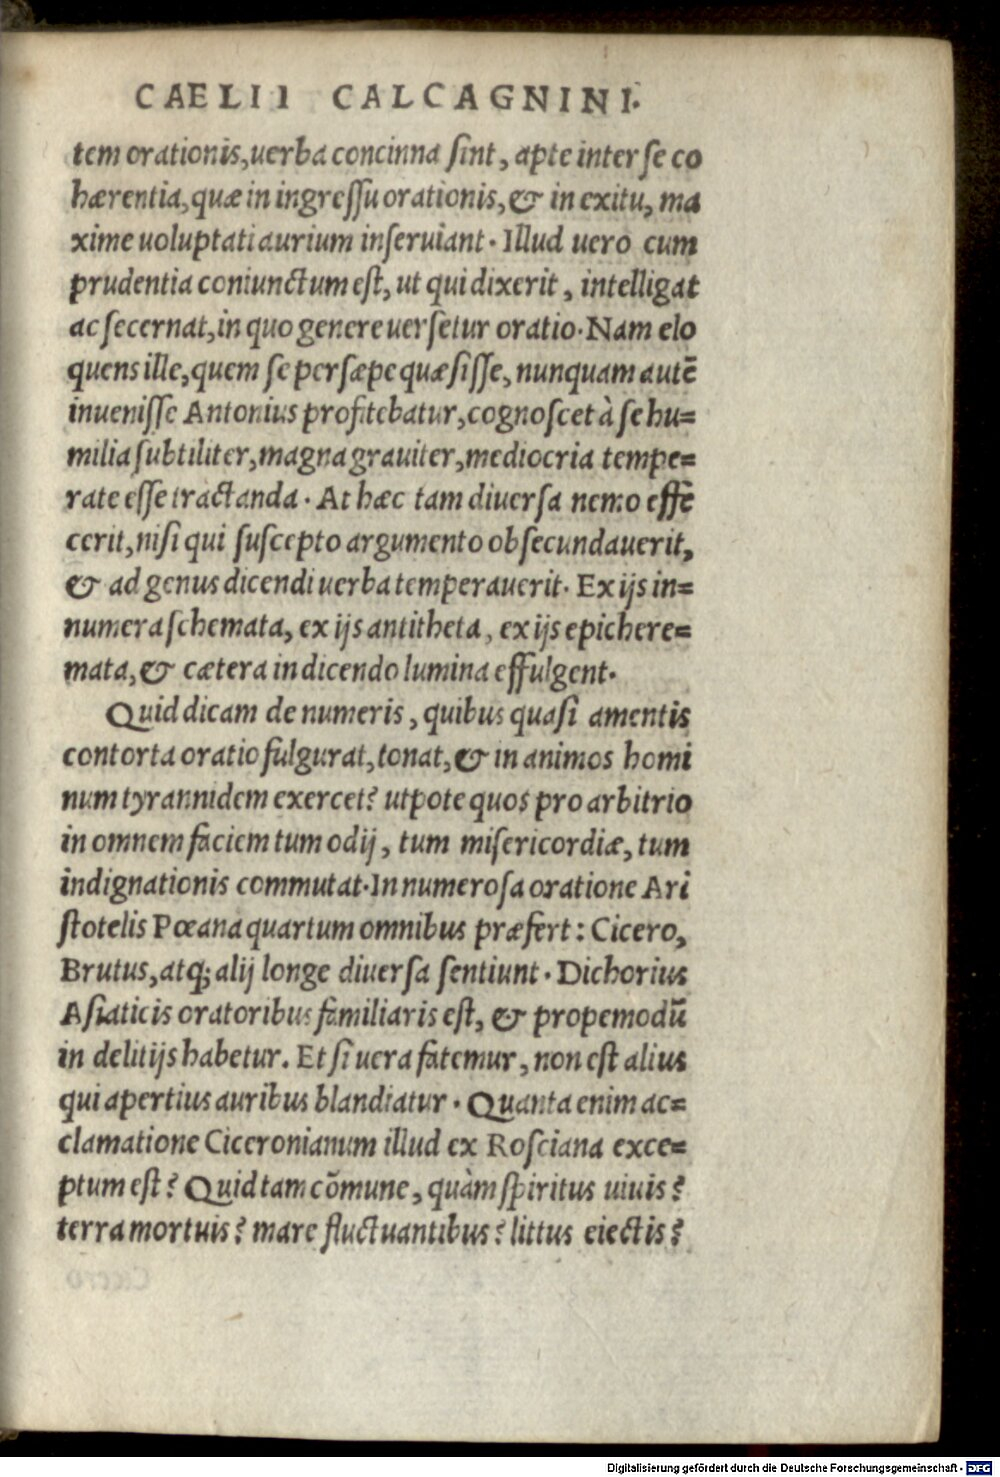 CAELII CALCAGNINI.
tem orationis, uerba concinna ſint, apte inter ſe co
hærentia, quæ in ingreſſu orationis, & in exitu, ma
xime uoluptati aurium inſeruiant. Illud uero cum
prudentia coniunctum eſt, ut qui dixerit, intelligat
ac ſecernat, in quo genere uerſetur oratio. Nam elo
quens ille, quem ſe perſæpe quæſiſſe, nunquam autē
inueniſſe Antonius profitebatur, cognoſcet à ſe hu=
milia ſubtiliter, magna grauiter, mediocria tempe=
rate eſſe tractanda. At hæc tam diuerſa nemo effe
cerit, niſi qui ſuſcepto argumento obſecundauerit,
& ad genus dicendi uerba temperauerit. Ex ijs in=
numera ſchemata, ex ijs antitheta, ex ijs epichere=
mata, & cætera in dicendo lumina effulgent.
Quid dicam de numeris, quibus quaſi amentis
contorta oratio fulgurat, tonat, & in animos homi
num tyrannidem exercet? utpote quos pro arbitrio
in omnem faciem tum odij, tum miſericordiæ, tum
indignationis commutat. In numeroſa oratione Ari
ſtotelis Pœana quartum omnibus præfert: Cicero,
Brutus, atq; alij longe diuerſa ſentiunt. Dichorius
Aſiaticis oratoribus familiaris eſt, & propemodū
in delitijs habetur. Et ſi uera fatemur, non eſt alius
qui apertius auribus blandiatur. Quanta enim ac=
clamatione Ciceronianum illud ex Roſciana exce=
ptum eſt? Quid tam cōmune, quàm ſpiritus uiuis?
terra mortuis? mare fluctuantibus? littus eiectis?
Digitalisierung gefördert durch die Deutsche Forschungsgemeinschaft - DFG